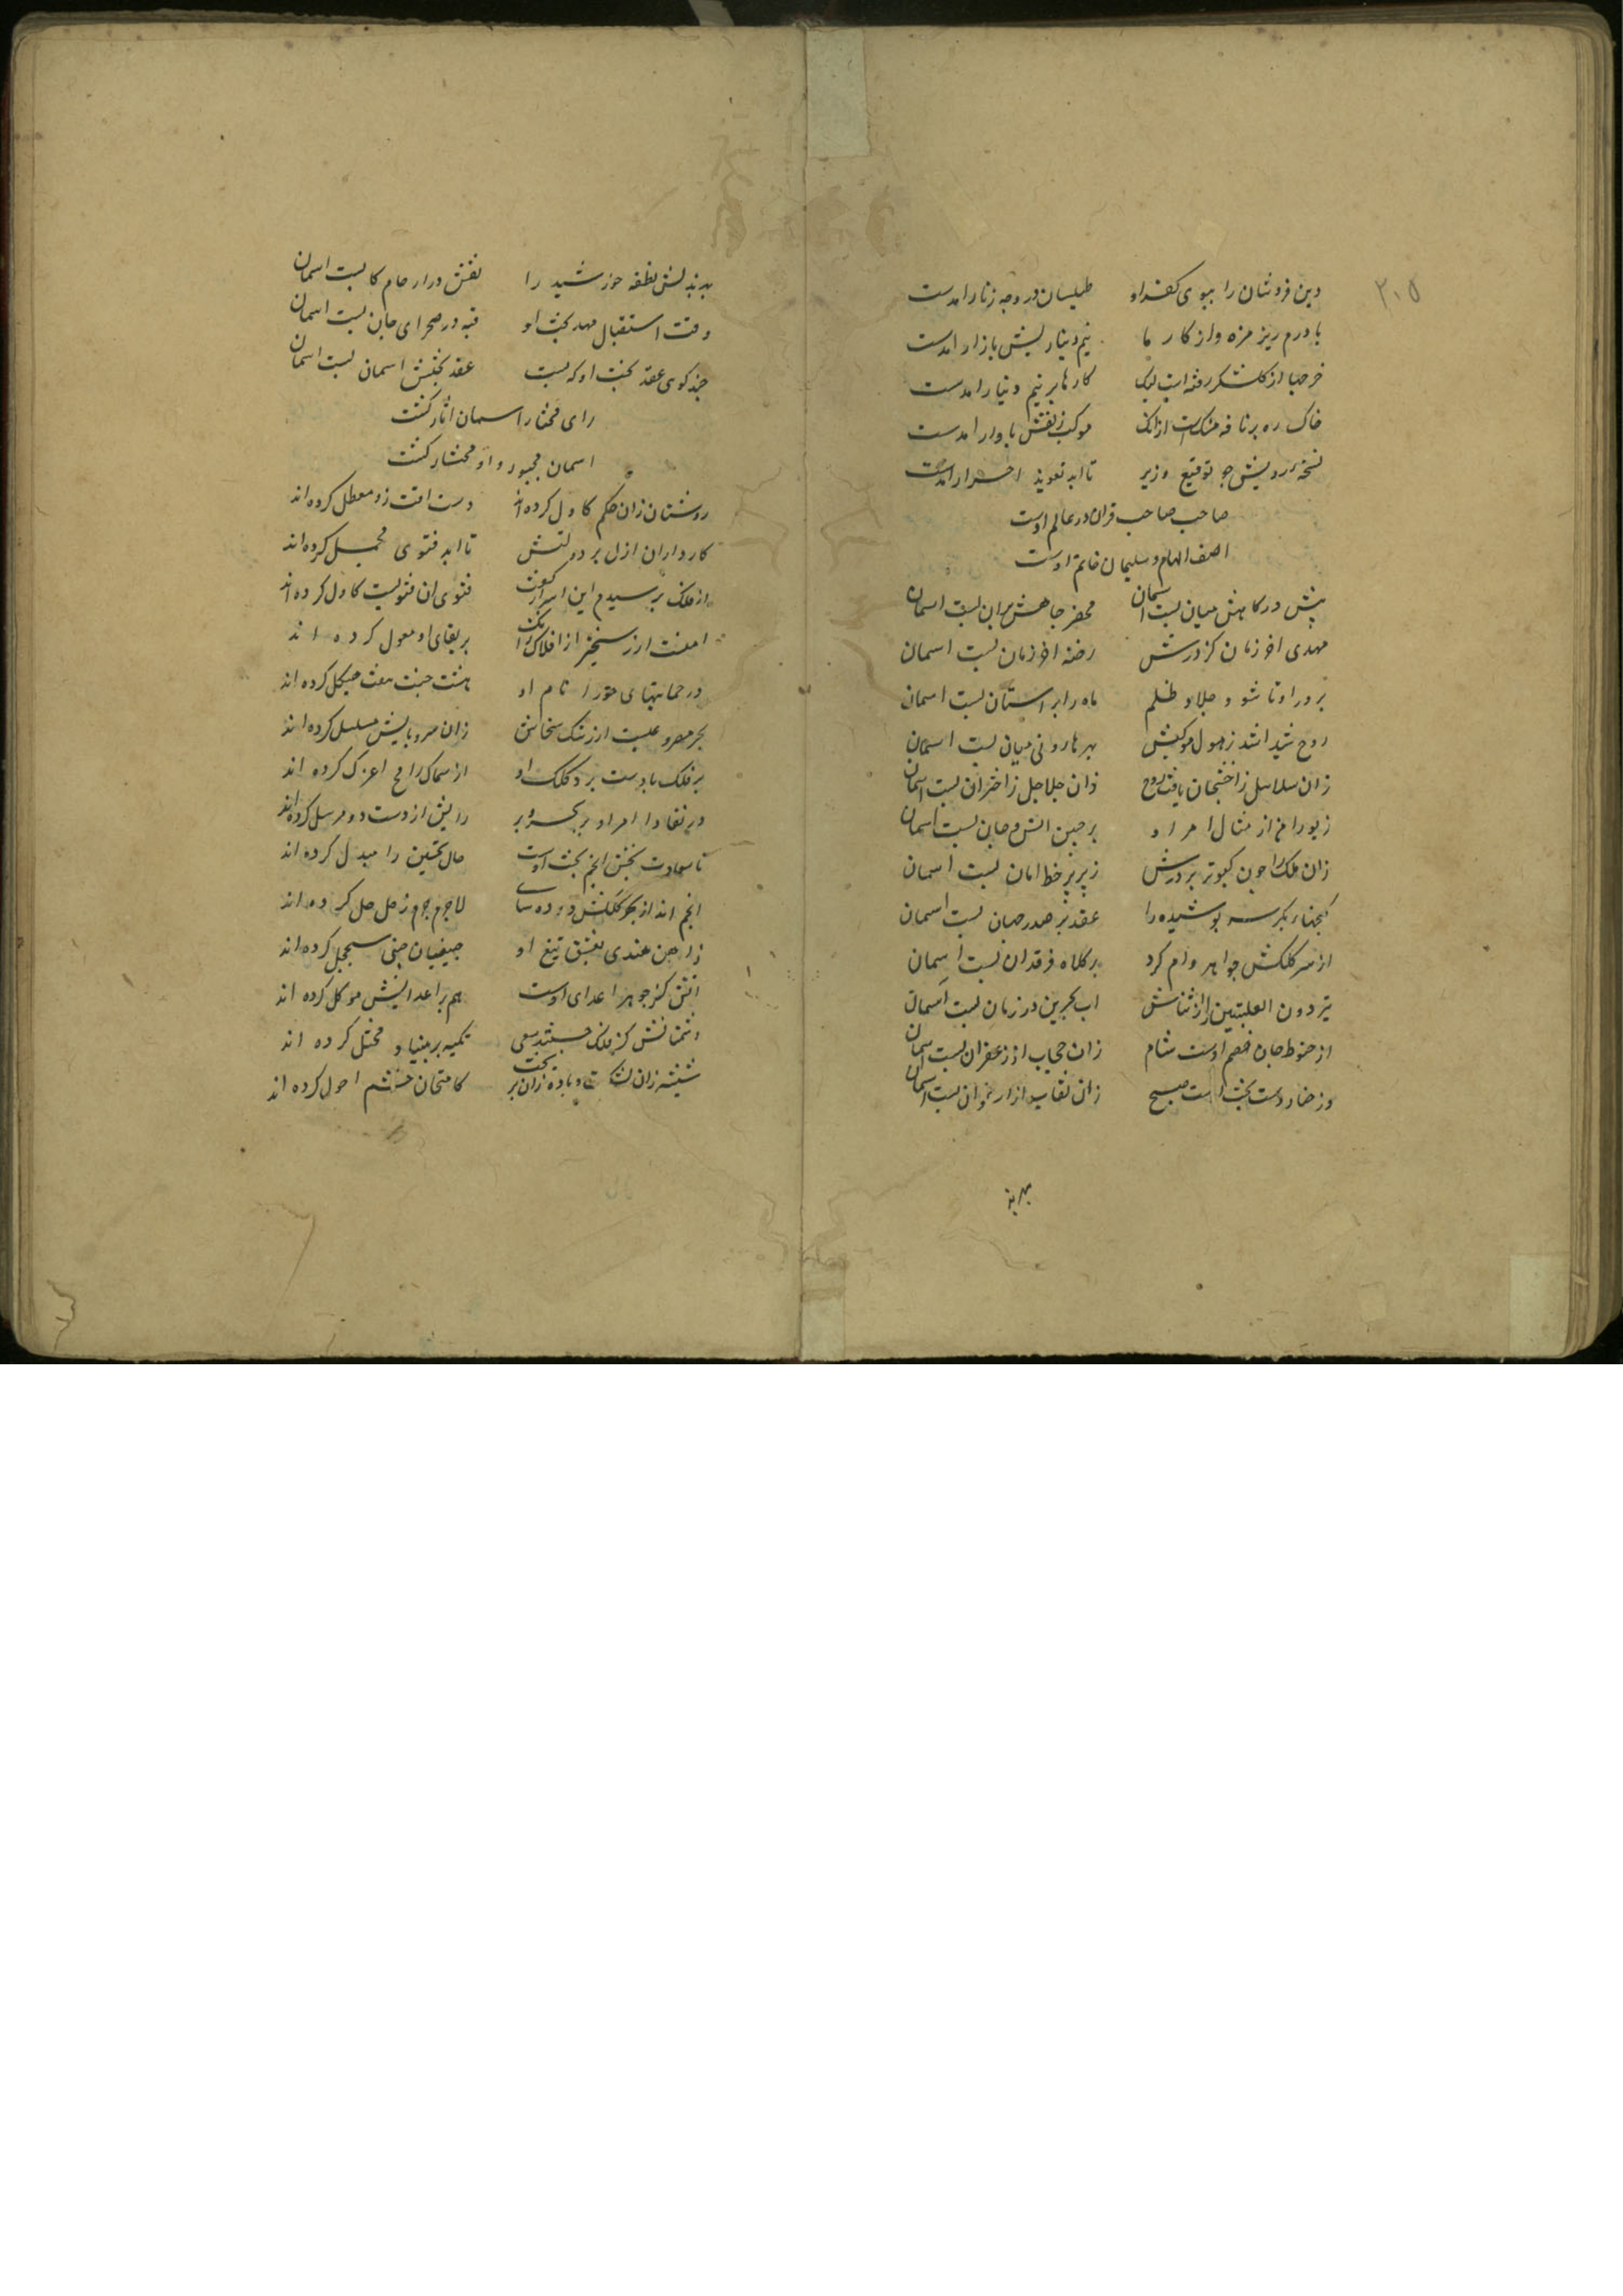 ۲۰۵
دین فروشان را ببوی کفر او طیلسان در وجه زنار امدست
با درم ریز مزه واز کار ما نیم دینارلیش بازار امدست
خرجها از کلشکر رفته است لیک کارها بر نیم دینار امدست
خاک ره بر نافه مشکست ازانک موکب زلفش بادوار امدست
نسخه رویش چو توقیع وزیر تا ابد تعویذ احرار امدست
صاحب صاحب قران در عالم اوست
اصف الهام و سلیمان خاتم اوست
پیش درکاهش میان بست اسمان محضر جاهش بران بست اسمان
مهدی اخر زمان کز درش رخنه اخر زمان بست اسمان
بر در او تا شو و جلاد ظلم ماه را بر استان بست اسمان
روح شیدا شد ز هول موکبش بهر هارونی میان بست اسمان
زان سلاسل زاختجان یافت روح زان جلاجل زاختران بست اسمان
زیور امن از مثال امر او بر جبین انس و جان بست اسمان
زان ملک را چون کبوتر بر درش زیر پر خط امان بست اسمان
کنجهاء بکر سر پوشیده را عقد بر صدر جهان بست اسمان
از سر کلکش جواهر وام کرد بر کلاه فرقدان بست اسمان
اب بحرین در زمان بست اسمان
از حنوط جان خصم اوست شام زان حجاب از زعفران بست اسمان
وز خضار دست بخت اوست صبح زان نقاب از ارغوان بست اسمان
بهر بذ
بهر بذلش نطفه خورشید را نقش در ارحام کان بست اسمان
وقت استقبال مهد بخت او قبه در صحرای جان بست اسمان
چند کوی عقد بخت او که بست عقد بختش اسمان بست اسمان
رای مختار اسمان اثار کشت
اسمان مجبور و او مختار کشت
روشنان زان حکم کاول کرده اند دست افت زو معطل کرده اند
کارداران ازل بر دولتش تا ابد فتوی مجمل کرده اند
از ملک پرسیدم این اسرار کفت فتوی ان فتویست کاول کرده اند
امنست از رستخیز افلاک را زانک بر بقای او معول کرده اند
در حمایتهای حرز نام او هشت جنت هفت هیکل کرده اند
بحر مصروعیست از رشک سخاش زان سر و پایش مسلسل کرده اند
بر فلک با دست برد کلک او از سماک رامح اعزل کرده اند
در نفاذ امر او بر بحر و بر رایش از دست دو مرسل کرده اند
تا سعادت بخش انجم بخت اوست حال نحسین را مبدل کرده اند
انجم اند از بهر کلکش دوده سای لاجرم جرم زحل حل کرده اند
زاهن هندی بعشق تیغ او صیقلیان چینی سجنجل کرده اند
اتش کز جوهر اعدای اوست هم بر اعداایش موکل کرده اند
دشمنانش کز فلک جستند سعی تکیه بر بنیاد مختل کرده اند
شیشه زان بشکست و باده زان بریخت کامتحان چشم احول کرده اند